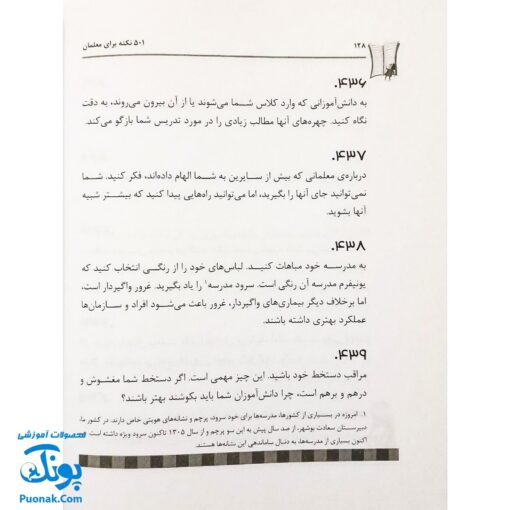 ۱۲۸
۵۰۱ نکته برای معلمان
۴۳۶.
به دانش‌آموزانی که وارد کلاس شما می‌شوند یا از آن بیرون می‌روند، به دقت
نگاه کنید. چهره‌های آنها مطالب زیادی را در مورد تدریس شما بازگو می‌کند.
۴۳۷.
درباره‌ی معلمانی که بیش از سایرین به شما الهام داده‌اند، فکر کنید. شما
نمی‌توانید جای آنها را بگیرید، اما می‌توانید راه‌هایی پیدا کنید که بیشتر شبیه
آنها بشوید.
۴۳۸.
به مدرسه خود مباهات کنید. لباس‌های خود را از رنگی انتخاب کنید که
یونیفرم مدرسه آن رنگی است. سرود مدرسه۱ را یاد بگیرید. غرور واگیردار است،
اما برخلاف دیگر بیماری‌های واگیردار، غرور باعث می‌شود افراد و سازمان‌ها
عملکرد بهتری داشته باشند.
۴۳۹.
مراقب دستخط خود باشید. این چیز مهمی است. اگر دستخط شما مغشوش و
درهم و برهم است، چرا دانش‌آموزان شما باید بکوشند بهتر باشند؟
۱. امروزه در بسیاری از کشورها، مدرسه‌ها برای خود سرود، پرچم و نشانه‌های هویتی خاص دارند. در کشور ما،
دبیرستان سعادت بوشهر، از صد سال پیش به این سو پرچم و از سال ۱۳۰۵ تاکنون سرود ویژه داشته است.
اکنون بسیاری از مدرسه‌ها، به دنبال ساماندهی این نشانه‌ها هستند
محصولات آموزشی
پونک
Puonak.Com